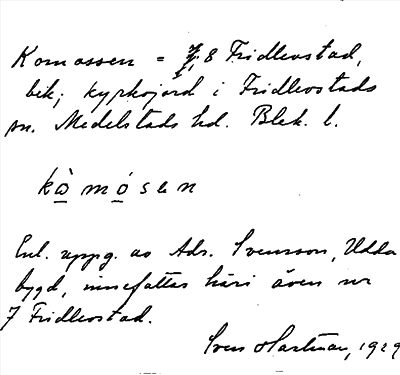 Komossen = 7, 8 Fridlevstad,
bik; kyrkojord i Fridlevstads
sn. Medelstads hd. Blek. l.
kò̲ mó̲sen
Enl. uppg. av Adr. Svensson, Udda
bygd, innefattas häri även nr
7 Fridlevstad.
Sven Hartman, 1929